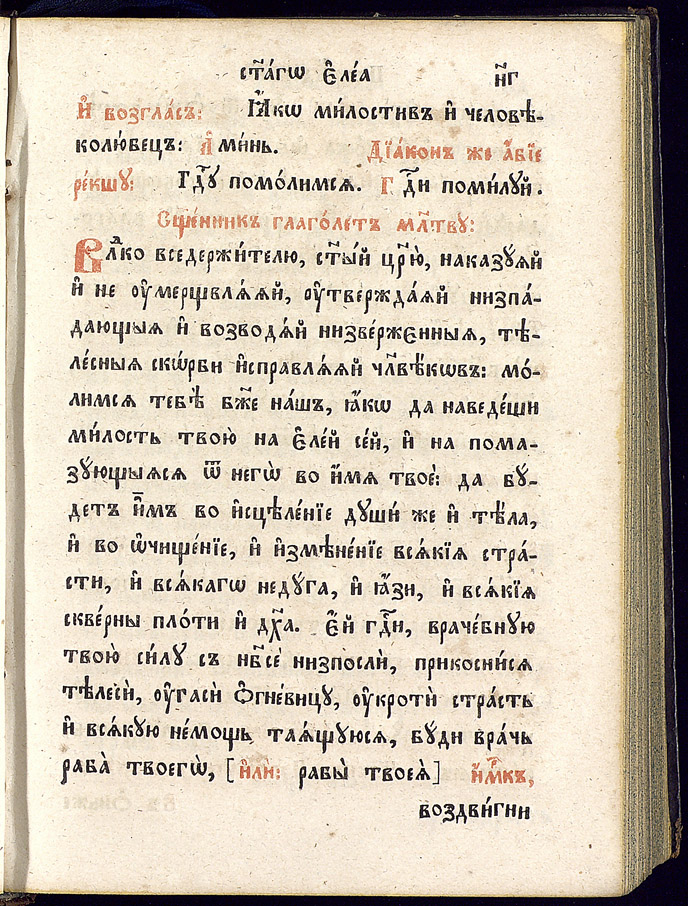 ст҃а́гѡ є҆ле́а н҃г
И҆ возгла́съ: Ꙗ҆́кѡ ми́лостивъ и҆ человѣ-
колю́бецъ: А҆ми́нь. Дїа́конъ же а҆́бїе
ре́кшу: Гдⷭ҇у помо́лимсѧ. Гдⷭ҇и поми́луй.
Сщ҃е́нникъ глаго́летъ мл҃тву:
Влⷣко вседержи́телю, ст҃ы́й цр҃ю̀, наказꙋ́ѧй
и҆ не ѹ҆мерщвлѧ́ѧй, ѹ҆твержда́ѧй низпа́-
дающыѧ и҆ возводѧ́й низве́рженныѧ, тѣ-
ле́сныѧ скѡ́рби и҆справлѧ́ѧй чл҃вѣ́кѡвъ: мо́-
лимсѧ тебѣ̀ бж҃е на́шъ, ꙗ҆́кѡ да наведе́ши
ми́лость твою̀ на є҆ле́й се́й, и҆ на пома-
зꙋющыѧсѧ ѿ негѡ̀ во и҆́мѧ твоѐ: да бꙋ́-
детъ и҆̀мъ во и҆сцѣле́нїе дꙋши́ же и҆ тѣ́ла,
и҆ во ѡ҆чище́нїе, и҆ и҆змѣне́нїе всѧ́кїѧ стра́-
сти, и҆ всѧ́кагѡ недꙋ́га, и҆ ꙗ҆́зи, и҆ всѧ́кїѧ
скве́рны пло́ти и҆ дꙋ́ха. Є҆́й гдⷭ҇и, враче́бнꙋю
твою̀ си́лꙋ съ нб҃сѐ низпослѝ, прикосни́сѧ
тѣлесѝ, ѹ҆гасѝ ѻ҆гневи́цꙋ, ѹ҆кротѝ стра́сть
и҆ всѧ́кꙋю не́мощь таѧ́щꙋюсѧ, бꙋ́ди вра́чь
раба̀ твоегѡ̀, [и҆лѝ: рабы̀ твоеѧ̀] и҆́м҃къ,
воздви́гни